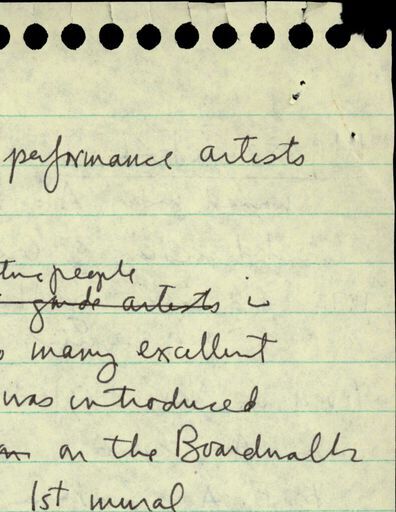 performance artists
people
garde artists in
many excellent
was introduced
on the Boardwalk
1st mural